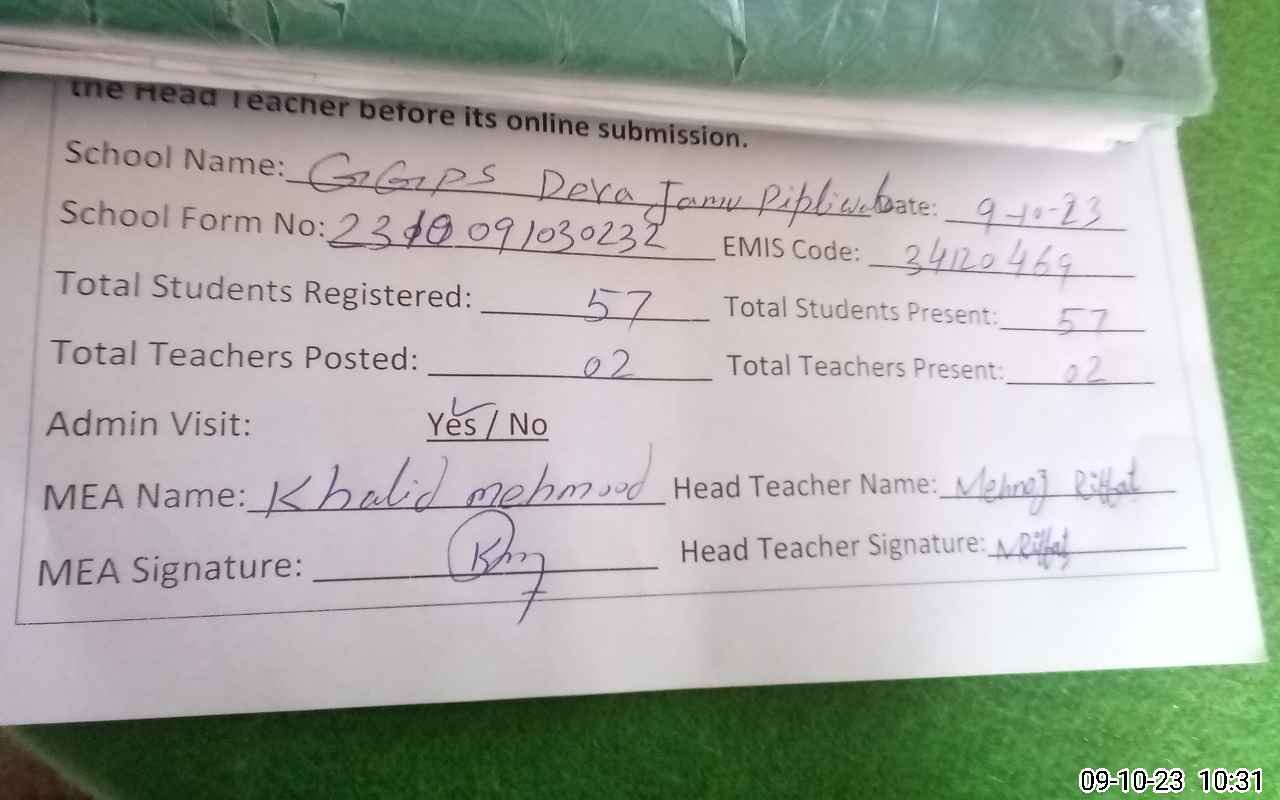 the Head Teacher before its online submission.
School Name: GGPS Dera Jamu Pipliwala Date: 9-10-23
School Form No: 2310091030232 EMIS Code: 34120469
Total Students Registered: 57 Total Students Present: 57
Total Teachers Posted: 02 Total Teachers Present: 02
Admin Visit: Yes / No
MEA Name: Khalid mehmood Head Teacher Name: Mehnaz Riffat
MEA Signature: Head Teacher Signature: MRiffat
09-10-23 10:31